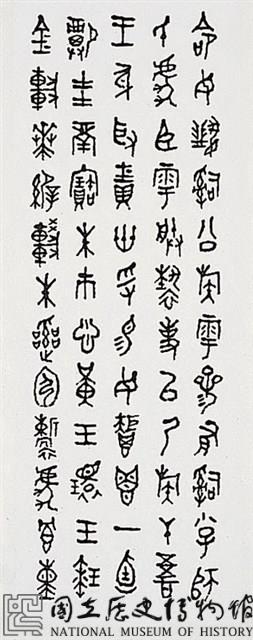 命女𩁹嗣公族雩參有嗣小子師
氏虎臣雩朕褻事以乃族干吾
王身取賁卅寽易女秬鬯一卣
祼圭瓚寶朱市悤黃玉環玉瑹
金車賁緙較朱虎冟熏
國立歷史博物館
NATIONAL MUSEUM OF HISTORY